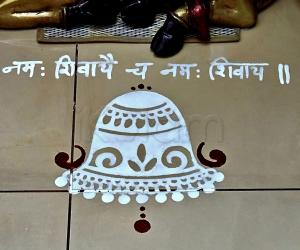 नमः शिवायै च नमः शिवाय ॥